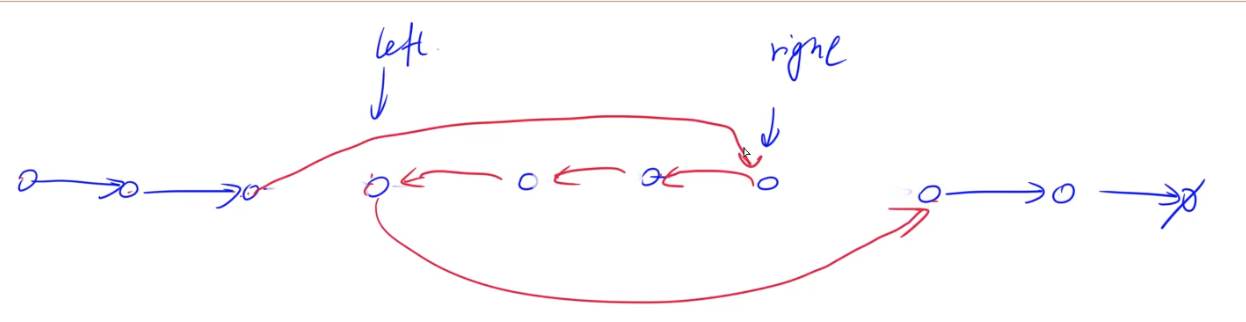 left
right